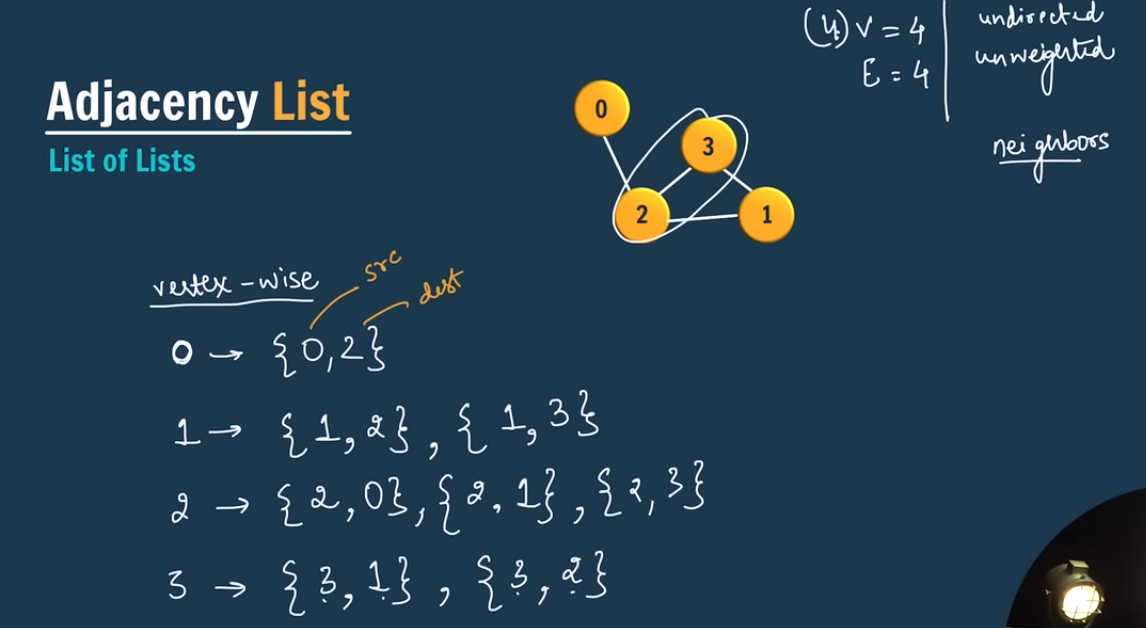 Adjacency List
List of Lists
(4) V = 4
E = 4
undirected
unweighted
neighbors
0
3
2
1
vertex-wise
src
dest
0 → {0,2}
1 → {1,2}, {1,3}
2 → {2,0}, {2,1}, {2,3}
3 → {3,1}, {3,2}